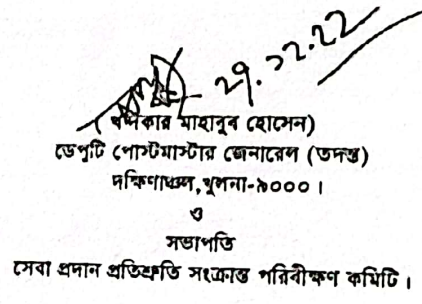 ২৭.১২.২২
(খন্দকার মাহাবুব হোসেন)
ডেপুটি পোস্টমাস্টার জেনারেল (তদন্ত)
দক্ষিণাঞ্চল, খুলনা-৯০০০।
ও
সভাপতি
সেবা প্রদান প্রতিশ্রুতি সংক্রান্ত পরিবীক্ষণ কমিটি।